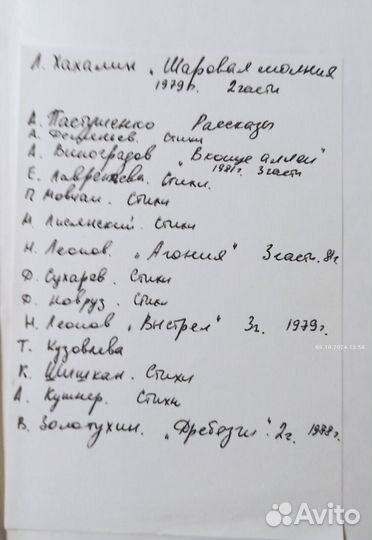 Л. Хахалин „Шаровая молния
1979г. 2 части
А. Пастушенко Рассказы
А. Дементьев. Стихи
А. Виноградов „В конце аллеи"
1981г. 3 части
Е. Лаврентьева. Стихи.
П. Мовчан. Стихи
М. Лисянский. Стихи
Н. Леонов. „Агония" 3 части. 81г
Д. Сухарев. Стихи
Д. Новруз. Стихи
Н. Леонов „Выстрел" 3г. 1979г.
05.10.2024 13:56
Т. Кузовлева
К. Шишкан. Стихи
А. Кушнер. Стихи
В. Золотухин. „Дребезги". 2г. 1978г.
Avito